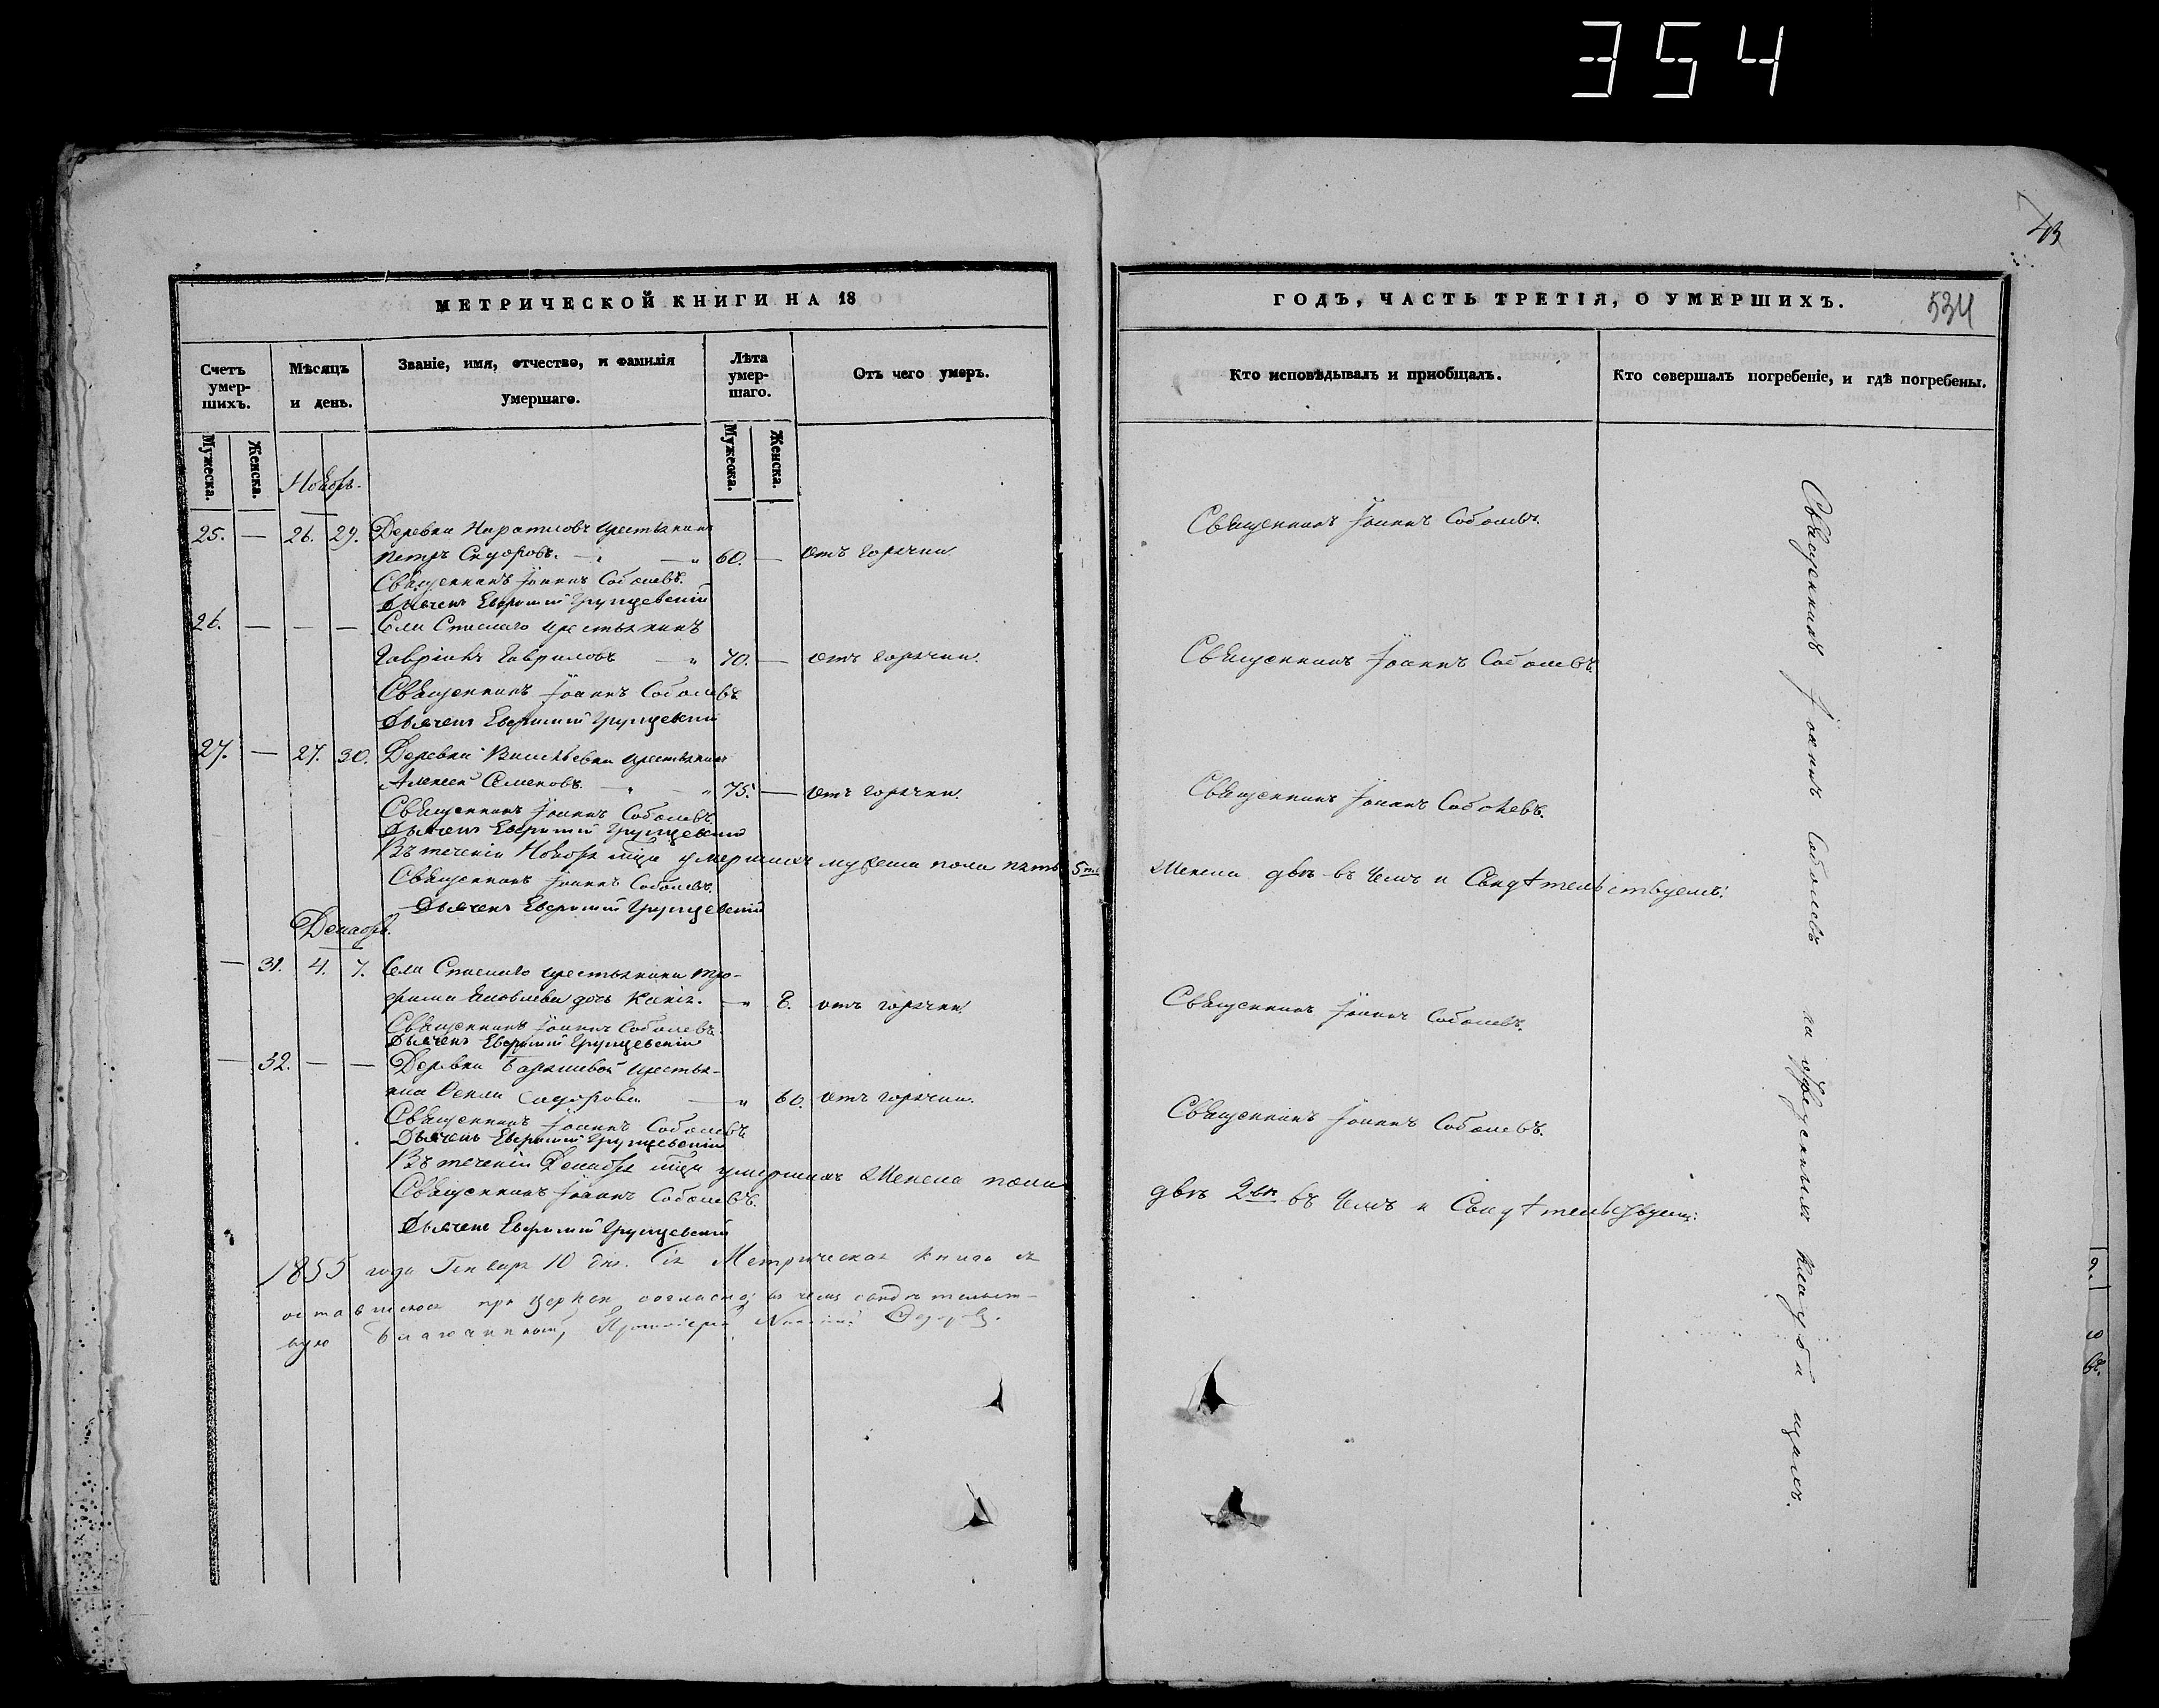 354
43
МЕТРИЧЕСКОЙ КНИГИ НА 18
ГОДЪ, ЧАСТЬ ТРЕТІЯ, О УМЕРШИХЪ.
534
Счетъ умер-
шихъ.
Мѣсяцъ
и день.
Званіе, имя, отчество, и фамилія
умершаго.
Лѣта
умер-
шаго.
Отъ чего умеръ.
Кто исповѣдывалъ и пріобщалъ.
Кто совершалъ погребеніе, и гдѣ погребены.
Мужеска.
Женска.
Мужеска.
Женска.
Ноябрь.
25. — 26. 29. Деревни крестьянинъ
Петръ Сидоровъ. — 60. — отъ горячки
Священникъ Іоаннъ Соболевъ.
Священникъ Іоаннъ Соболевъ.
Дьячекъ Евфимій Грунцевскій
26. — — — Села Спаскаго крестьянинъ
Гавріилъ Гавриловъ — 70. — отъ горячки.
Священникъ Іоаннъ Соболевъ.
Священникъ Іоаннъ Соболевъ
Дьячекъ Евфимій Грунцевскій
27. — 27. 30. Деревни крестьянинъ
Алексей Семеновъ. — 75. — отъ горячки.
Священникъ Іоаннъ Соболевъ.
Священникъ Іоаннъ Соболевъ.
Дьячекъ Евфимій Грунцевскій
Въ теченіи Ноября мца умершихъ мужеска пола пять 5ть
женска двѣ въ чемъ и Свидѣтельствуемъ:
Священникъ Іоаннъ Соболевъ.
Дьячекъ Евфимій Грунцевскій
Декабрь.
— 31. 4. 7. Села Спаскаго крестьянина Тро-
фима Яковлева дочь — 8. отъ горячки.
Священникъ Іоаннъ Соболевъ.
Священникъ Іоаннъ Соболевъ.
Дьячекъ Евфимій Грунцевскій
— 32. — — Деревни Барышевой крестья-
нка Сидорова — 60. отъ горячки.
Священникъ Іоаннъ Соболевъ.
Священникъ Іоаннъ Соболевъ.
Дьячекъ Евфимій Грунцевскій
Въ теченіи Декабря мца умершихъ женска пола
двѣ 2вѣ въ чемъ и Свидѣтельствуемъ:
Священникъ Іоаннъ Соболевъ.
Дьячекъ Евфимій Грунцевскій
1855 года Генваря 10 дня. Сія Метрическая книга съ
оставшеюся при церкви согласна; въ чемъ свидѣтельст-
вую Благочинный,
Священникъ Іоаннъ Соболевъ на кладбищахъ.